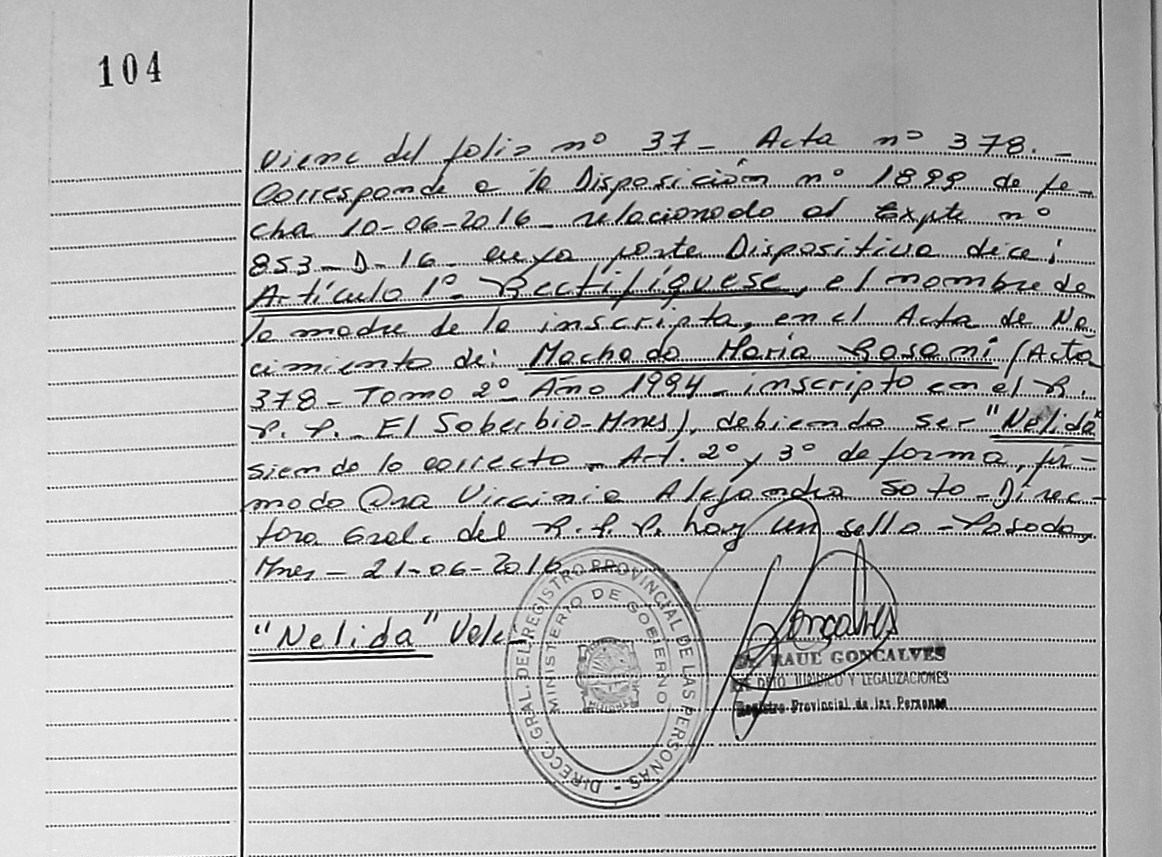 104
Viene del folio nº 37 - Acta nº 378. -
Corresponde a la Disposición nº 1899 de fe-
cha 10-06-2016 - relacionado al Expte nº
853-D-16 - cuya parte Dispositiva dice:
Artículo 1º - Rectifíquese, el nombre de
la madre de la inscripta, en el Acta de Na
cimiento de: Machado María Rosani (Acta
378 - Tomo 2º - Año 1994 - inscripto en el R.
P. P. - El Soberbio - Mnes), debiendo ser "Nelida"
siendo lo correcto - Art. 2º y 3º de forma, fir-
mado Dra Virginia Alejandra Soto - Direc-
tora Gral. del R. P. P. hay un sello - Posadas,
Mnes - 21-06-2016
"Nelida" Vale
DIRECC. GRAL. DEL REGISTRO PROVINCIAL DE LAS PERSONAS -
MINISTERIO DE GOBIERNO
Gonçalves
RAUL GONCALVES
DPTO. JURIDICO Y LEGALIZACIONES
Registro Provincial de las Personas